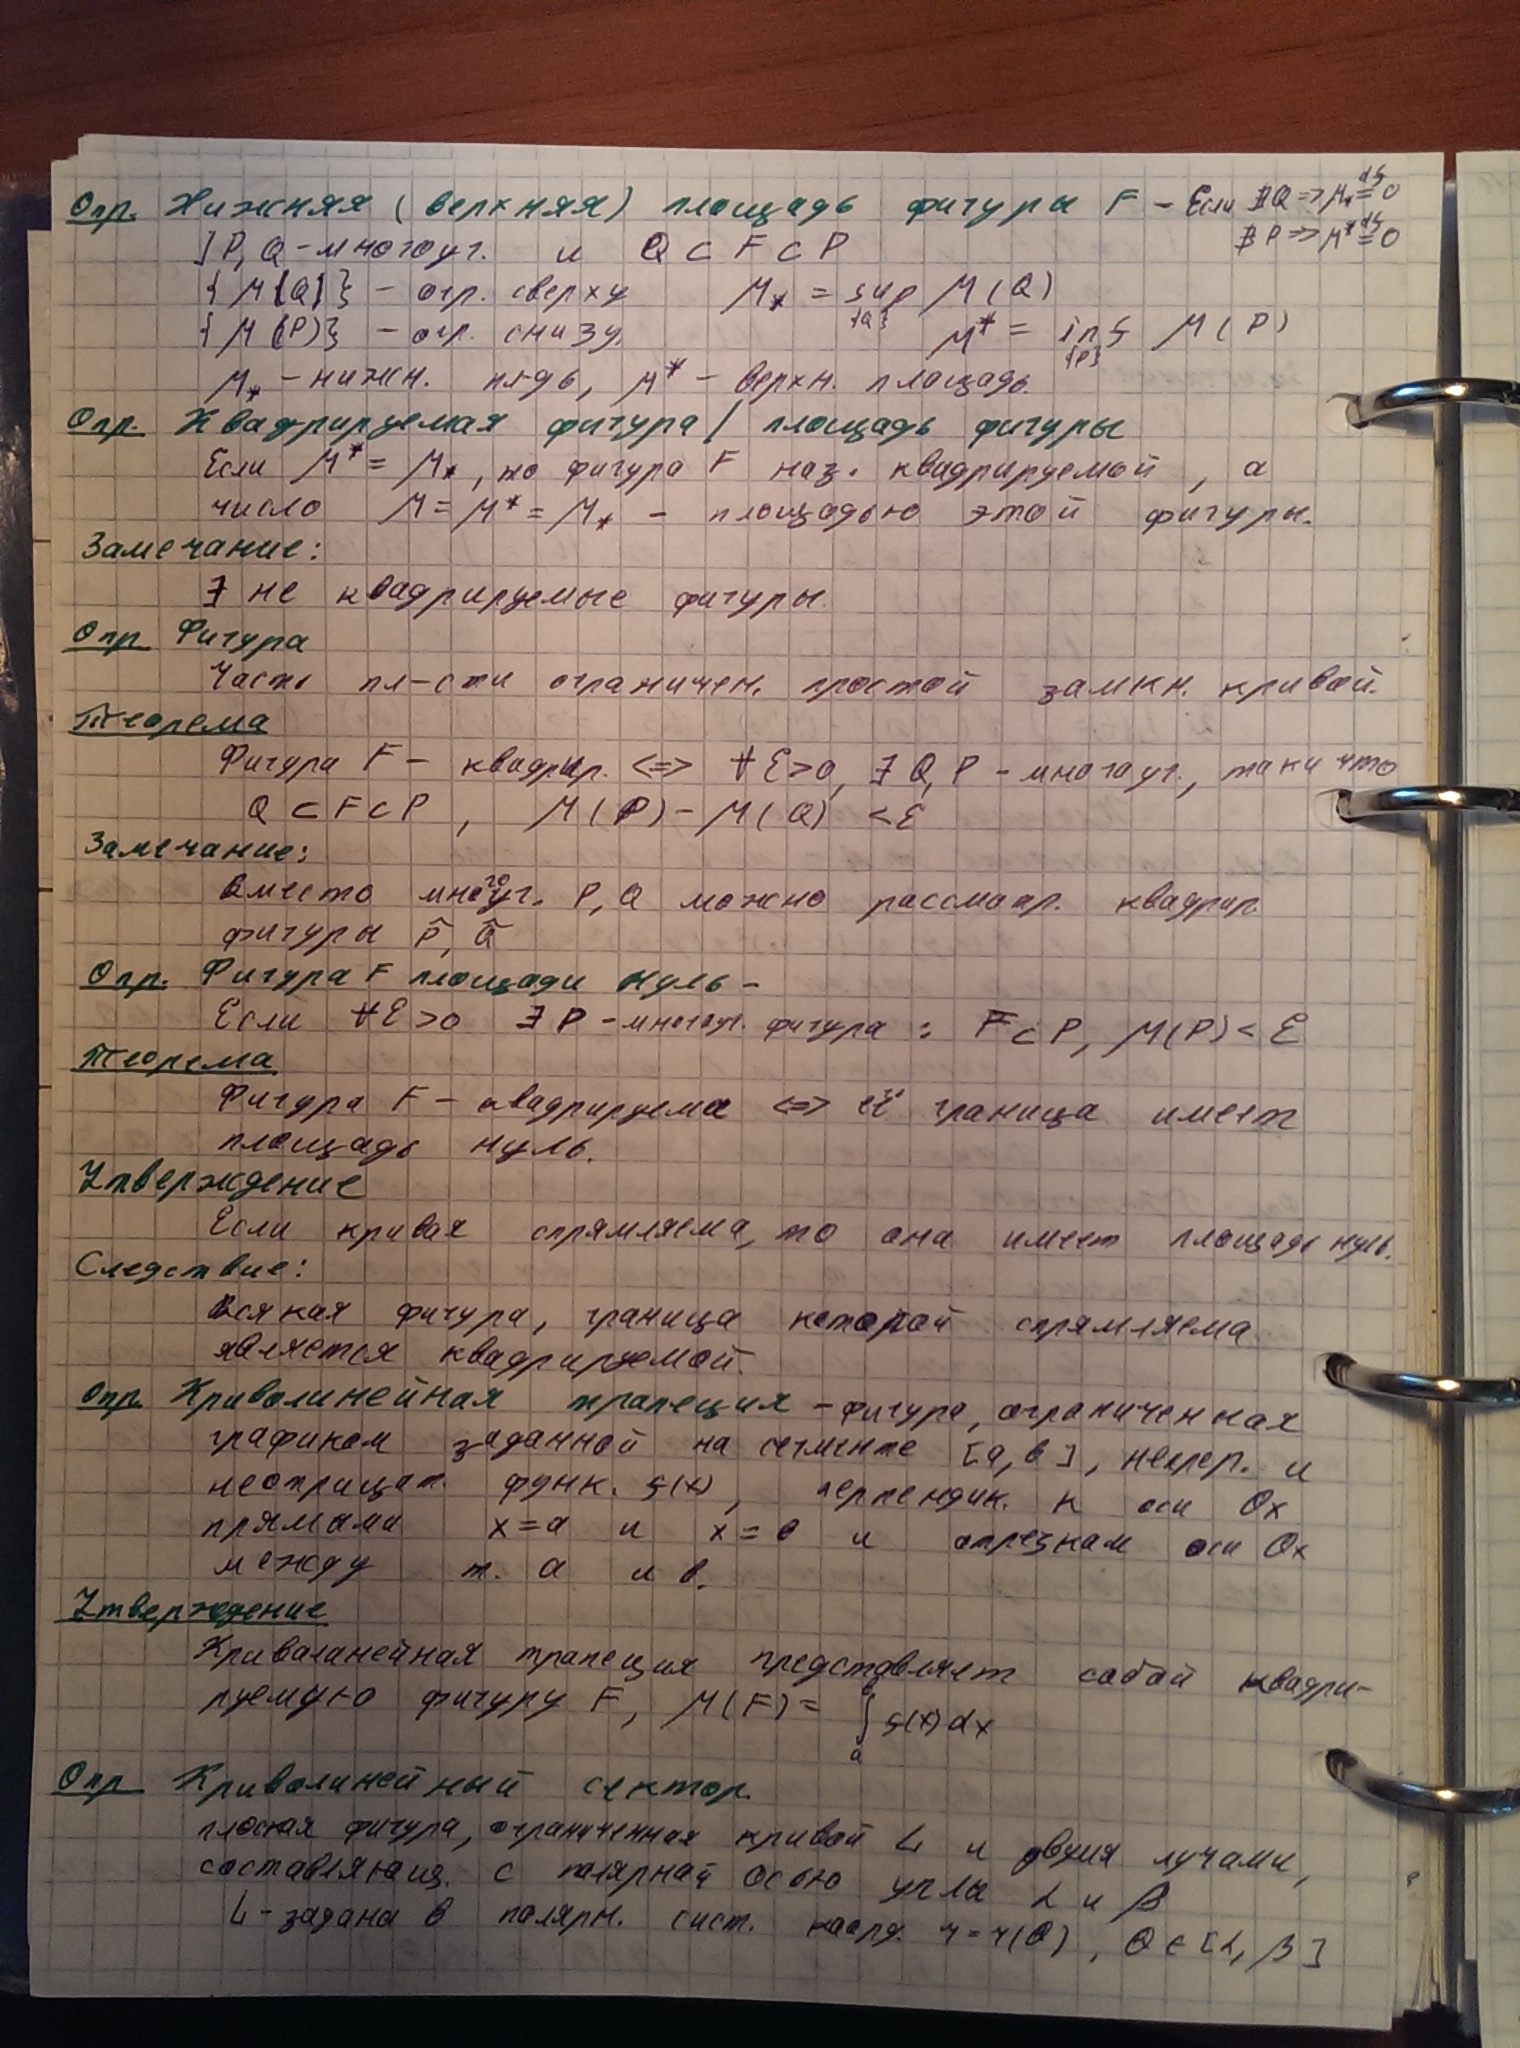 Опр. Нижняя (верхняя) площадь фигуры F – Если ∄Q => M_* =^{df} 0
∄P => M^* =^{df} 0
] P, Q – многоуг. и Q ⊂ F ⊂ P
{M(Q)} – огр. сверху M_* = sup_{{Q}} M(Q)
{M(P)} – огр. снизу. M^* = inf_{{P}} M(P)
M_* – нижн. пл-дь, M^* – верхн. площадь.
Опр. Квадрируемая фигура / площадь фигуры
Если M^* = M_*, то фигура F наз. квадрируемой, а
число M = M^* = M_* – площадью этой фигуры.
Замечание:
∃ не квадрируемые фигуры.
Опр Фигура
Часть пл-сти ограничен. простой замкн. кривой.
Теорема
Фигура F – квадрир. <=> ∀ε>0, ∃ Q, P – многоуг., таки что
Q ⊂ F ⊂ P, M(P) – M(Q) < ε
Замечание:
Вместо многоуг. P, Q можно рассмотр. квадрир.
фигуры P̃, Q̃
Опр. Фигура F площади нуль –
Если ∀ε>0 ∃P – многоуг. фигура : F ⊂ P, M(P) < ε
Теорема
Фигура F – квадрируема <=> её граница имеет
площадь нуль.
Утверждение
Если кривая спрямляема, то она имеет площадь нуль.
Следствие:
Всякая фигура, граница которой спрямляема
является квадрируемой.
Опр Криволинейная трапеция – фигура, ограниченная
графиком заданной на сегменте [a, b], непрер. и
неотрицат. функ. f(x), перпендик. к оси Ox
прямыми x = a и x = b и отрезкам оси Ox
между т. a и b.
Утверждение
Криволинейная трапеция представляет собой квадри-
руемую фигуру F, M(F) = ∫_a^b f(x) dx
Опр Криволинейный сектор.
плоская фигура, ограниченная кривой L и двумя лучами,
составляющ. с полярной осью углы α и β
L – задана в полярн. сист. коорд. r = r(θ), θ ∈ [α, β]